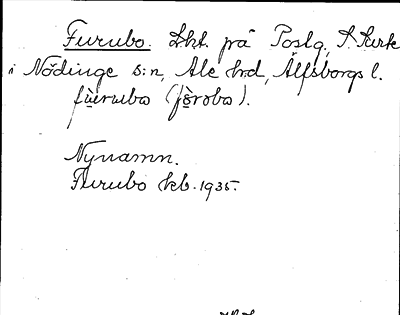 Furubo. Lht. på Postg. S. Surte
i Nödinge s:n, Ale hrd, Älfsborgs l.
fùrubo (fòrobo).
Nynamn.
Furubo kb. 1935.